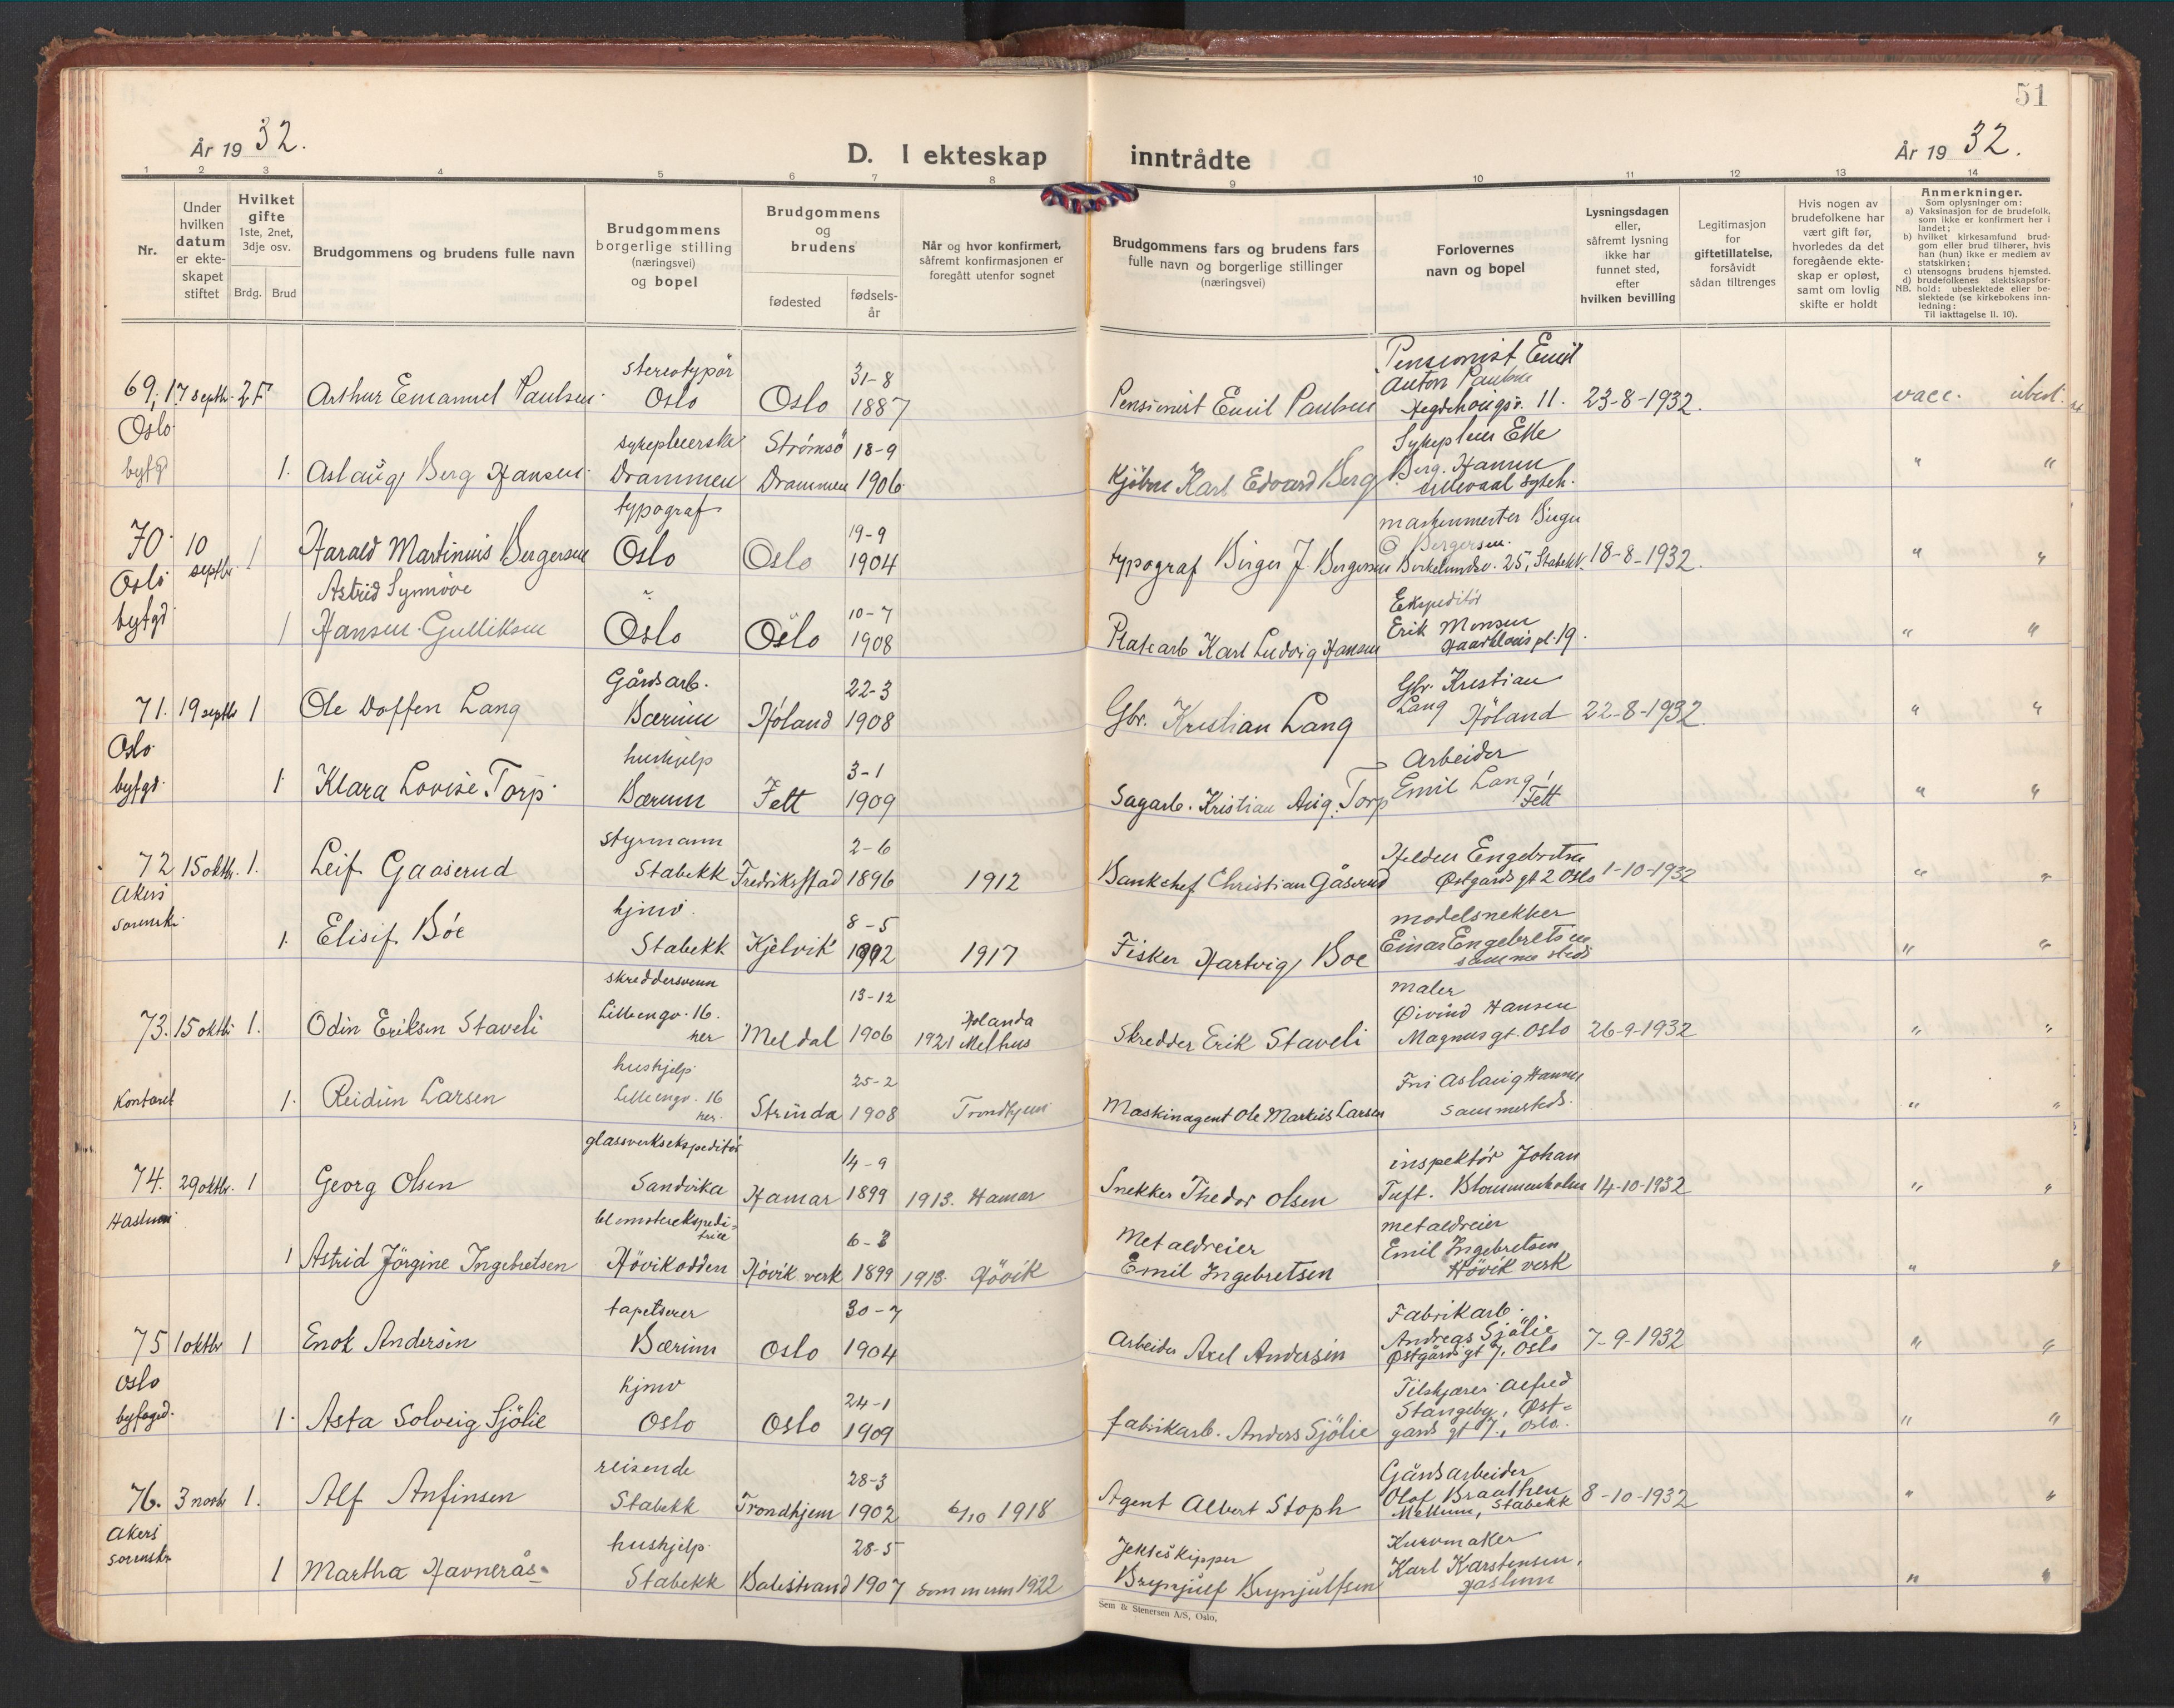 51
År 19 32.
D. I ekteskap inntrådte
År 19 32.
1 2 3 4 5 6 7 8 9 10 11 12 13 14
Nr.
Under hvilken datum er ekte-skapet stiftet
Hvilket gifte 1ste, 2net, 3dje osv.
Brdg. Brud
Brudgommens og brudens fulle navn
Brudgommens borgerlige stilling (næringsvei) og bopel
Brudgommens og brudens
fødested
fødsels-år
Når og hvor konfirmert, såfremt konfirmasjonen er foregått utenfor sognet
Brudgommens fars og brudens fars fulle navn og borgerlige stillinger (næringsvei)
Forlovernes navn og bopel
Lysningsdagen eller, såfremt lysning ikke har funnet sted, efter hvilken bevilling
Legitimasjon for giftetillatelse, forsåvidt sådan tiltrenges
Hvis nogen av brudefolkene har vært gift før, hvorledes da det foregående ekte-skap er opløst, samt om lovlig skifte er holdt
Anmerkninger.
Som oplysninger om:
a) Vaksinasjon for de brudefolk, som ikke er konfirmert her i landet;
b) hvilket kirkesamfund brud-gom eller brud tilhører, hvis han (hun) ikke er medlem av statskirken;
c) utensogns brudens hjemsted.
d) brudefolkenes slektskapsfor-hold: ubeslektede eller be-slektede (se kirkebokens inn-ledning:
NB.
Til iakttagelse II. 10).
stereotypør 31-8 Pensionist Emil
69, 17 septb. 2 F Arthur Emanuel Paulsen Oslo Oslo 1887 Pensionist Emil Paulsen Anton Paulsen Hegdehougsv. 11. 23-8-1932. vacc. ubesl.
Oslo
byfgd
sykepleierske Strømsø 18-9
1. Aslaug Berg Hansen Drammen Drammen 1906 Karl Edvard Berg Berg Hansen " "
typograf 19-9
70 10 septbr. 1 Harald Martinius Bergersen Oslo Oslo 1904 typograf Birger J. Bergersen Birkelundsv. 25, Stabekk 18-8-1932. " "
Oslo
byfgd
Astrid Synnøve 10-7 Ekspeditør
1 Hansen-Gulliksen Oslo Oslo 1908 Platearb Karl Ludvig Hansen Erik Monsen 19. " "
Gårdsarb. 22-3 Gbr. Kristian
71. 19 septb 1 Ole Doffen Lang Bærum Høland 1908 Gbr. Kristian Lang Lang Høland 22-8-1932. " "
Oslo
byfgd.
hushjelp 3-1 Arbeider
1. Klara Lovise Torp Bærum Fett 1909 Sagarb. Kristian Aug. Torp Emil Lang, Fett " "
styrmann 2-6
72 15 oktbr. 1. Leif Gaaserud Stabekk Fredrikstad 1896 1912 Bankchef Christian Gåserud Engebretsen Østgårds gt 2 Oslo 1-10-1932 " "
Akers
sorenskr.
hjmv. 8-5 modelsnekker
1. Elisif Bóe Stabekk Kjelvik 1902 1917 Fisker Hartvig Boe Einar Engebretsen samme steds " "
skreddersvenn 13-12 maler
73. 15 oktbr 1. Odin Eriksen Staveli Lilleengv. 16. her Meldal 1906 1921 Hølanda Melhus Skredder Erik Staveli Øivind Hansen Magnus gt. Oslo 26-9-1932 " "
hushjelp 25-2
Kontoret 1. Reidun Larsen Lilleengv. 16 her. Strinda 1908 Trondhjem Maskinagent Ole Markus Larsen Fru Aslaug Hansen sammesteds. " "
glassverksekspeditør 14-9 inspektør Johan
74. 29 oktbr. 1 Georg Olsen Sandvika Hamar 1899 1913. Hamar Snekker Thedor Olsen Tuft. Blommenholm 14-10-1932 " "
Haslum
blomsterekspeditrice 6-3 Metaldreier metaldreier
1 Astrid Jørgine Ingebretsen Høvikodden Høvik verk 1899 1913. Høvik Emil Ingebretsen Emil Ingebretsen Høvik verk " "
tapetserer 30-7 Fabrikarb.
75 1 oktbr 1 Enok Andersen Bærum Oslo 1904 Arbeider Axel Andersen Andreas Sjølie Østgårds gt 7. Oslo 7-9-1932 " "
Oslo
byfogd.
hjmv 24-1 Alfred
1. Asta Solveig Sjølie Oslo Oslo 1909 fabrikarb. Anders Sjølie Stangeby, Øst-gårds gt 7., Oslo. " "
reisende 28-3 Gårdsarbeider
76. 3 novbr 1. Alf Anfinsen Stabekk Trondhjem 1902 6/10 1918 Agent Albert Stoph Olof Braathen Mellum, Stabekk 8-10-1932 " "
Akers
sorenskr.
hushjelp 28-5 Jekteskipper Kurvmaker
1 Martha Havnerås Stabekk Balestrand 1907 sommeren 1922 Brynjulf Brynjulfsen Karl Karstensen, Haslum " "
Sem & Stenersen A/S, Oslo,